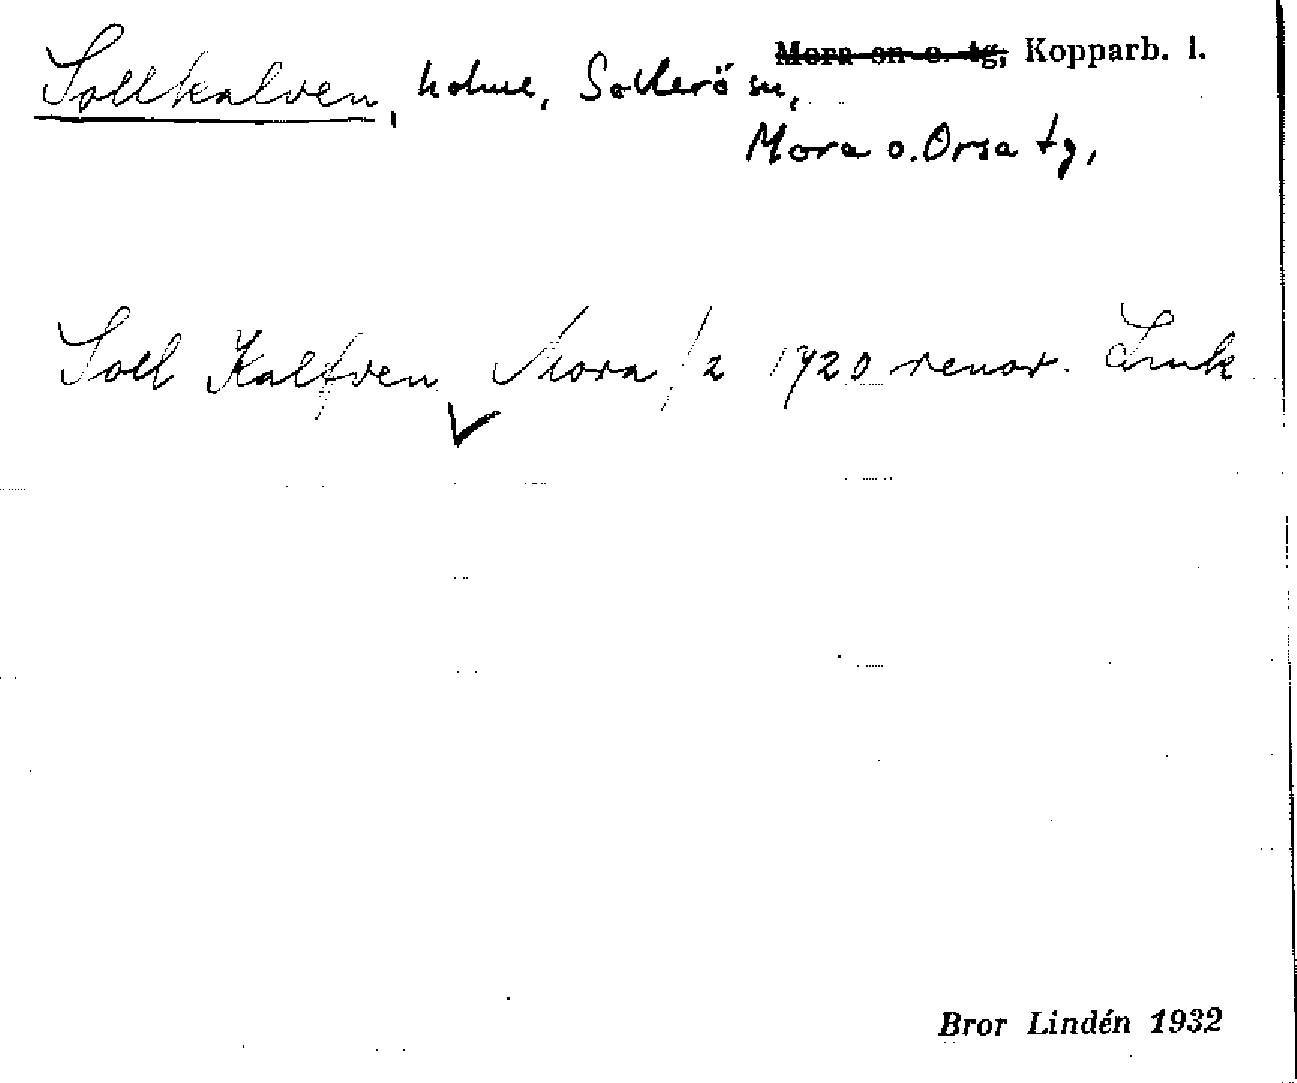 ~~Mora sn o. tg;~~ Kopparb. l.
Sollkalven, holme, Sollerö sn,
Mora o. Orsa tg,
Soll Kalfven Mora /2 1720 renov. Lmk
Bror Lindén 1932